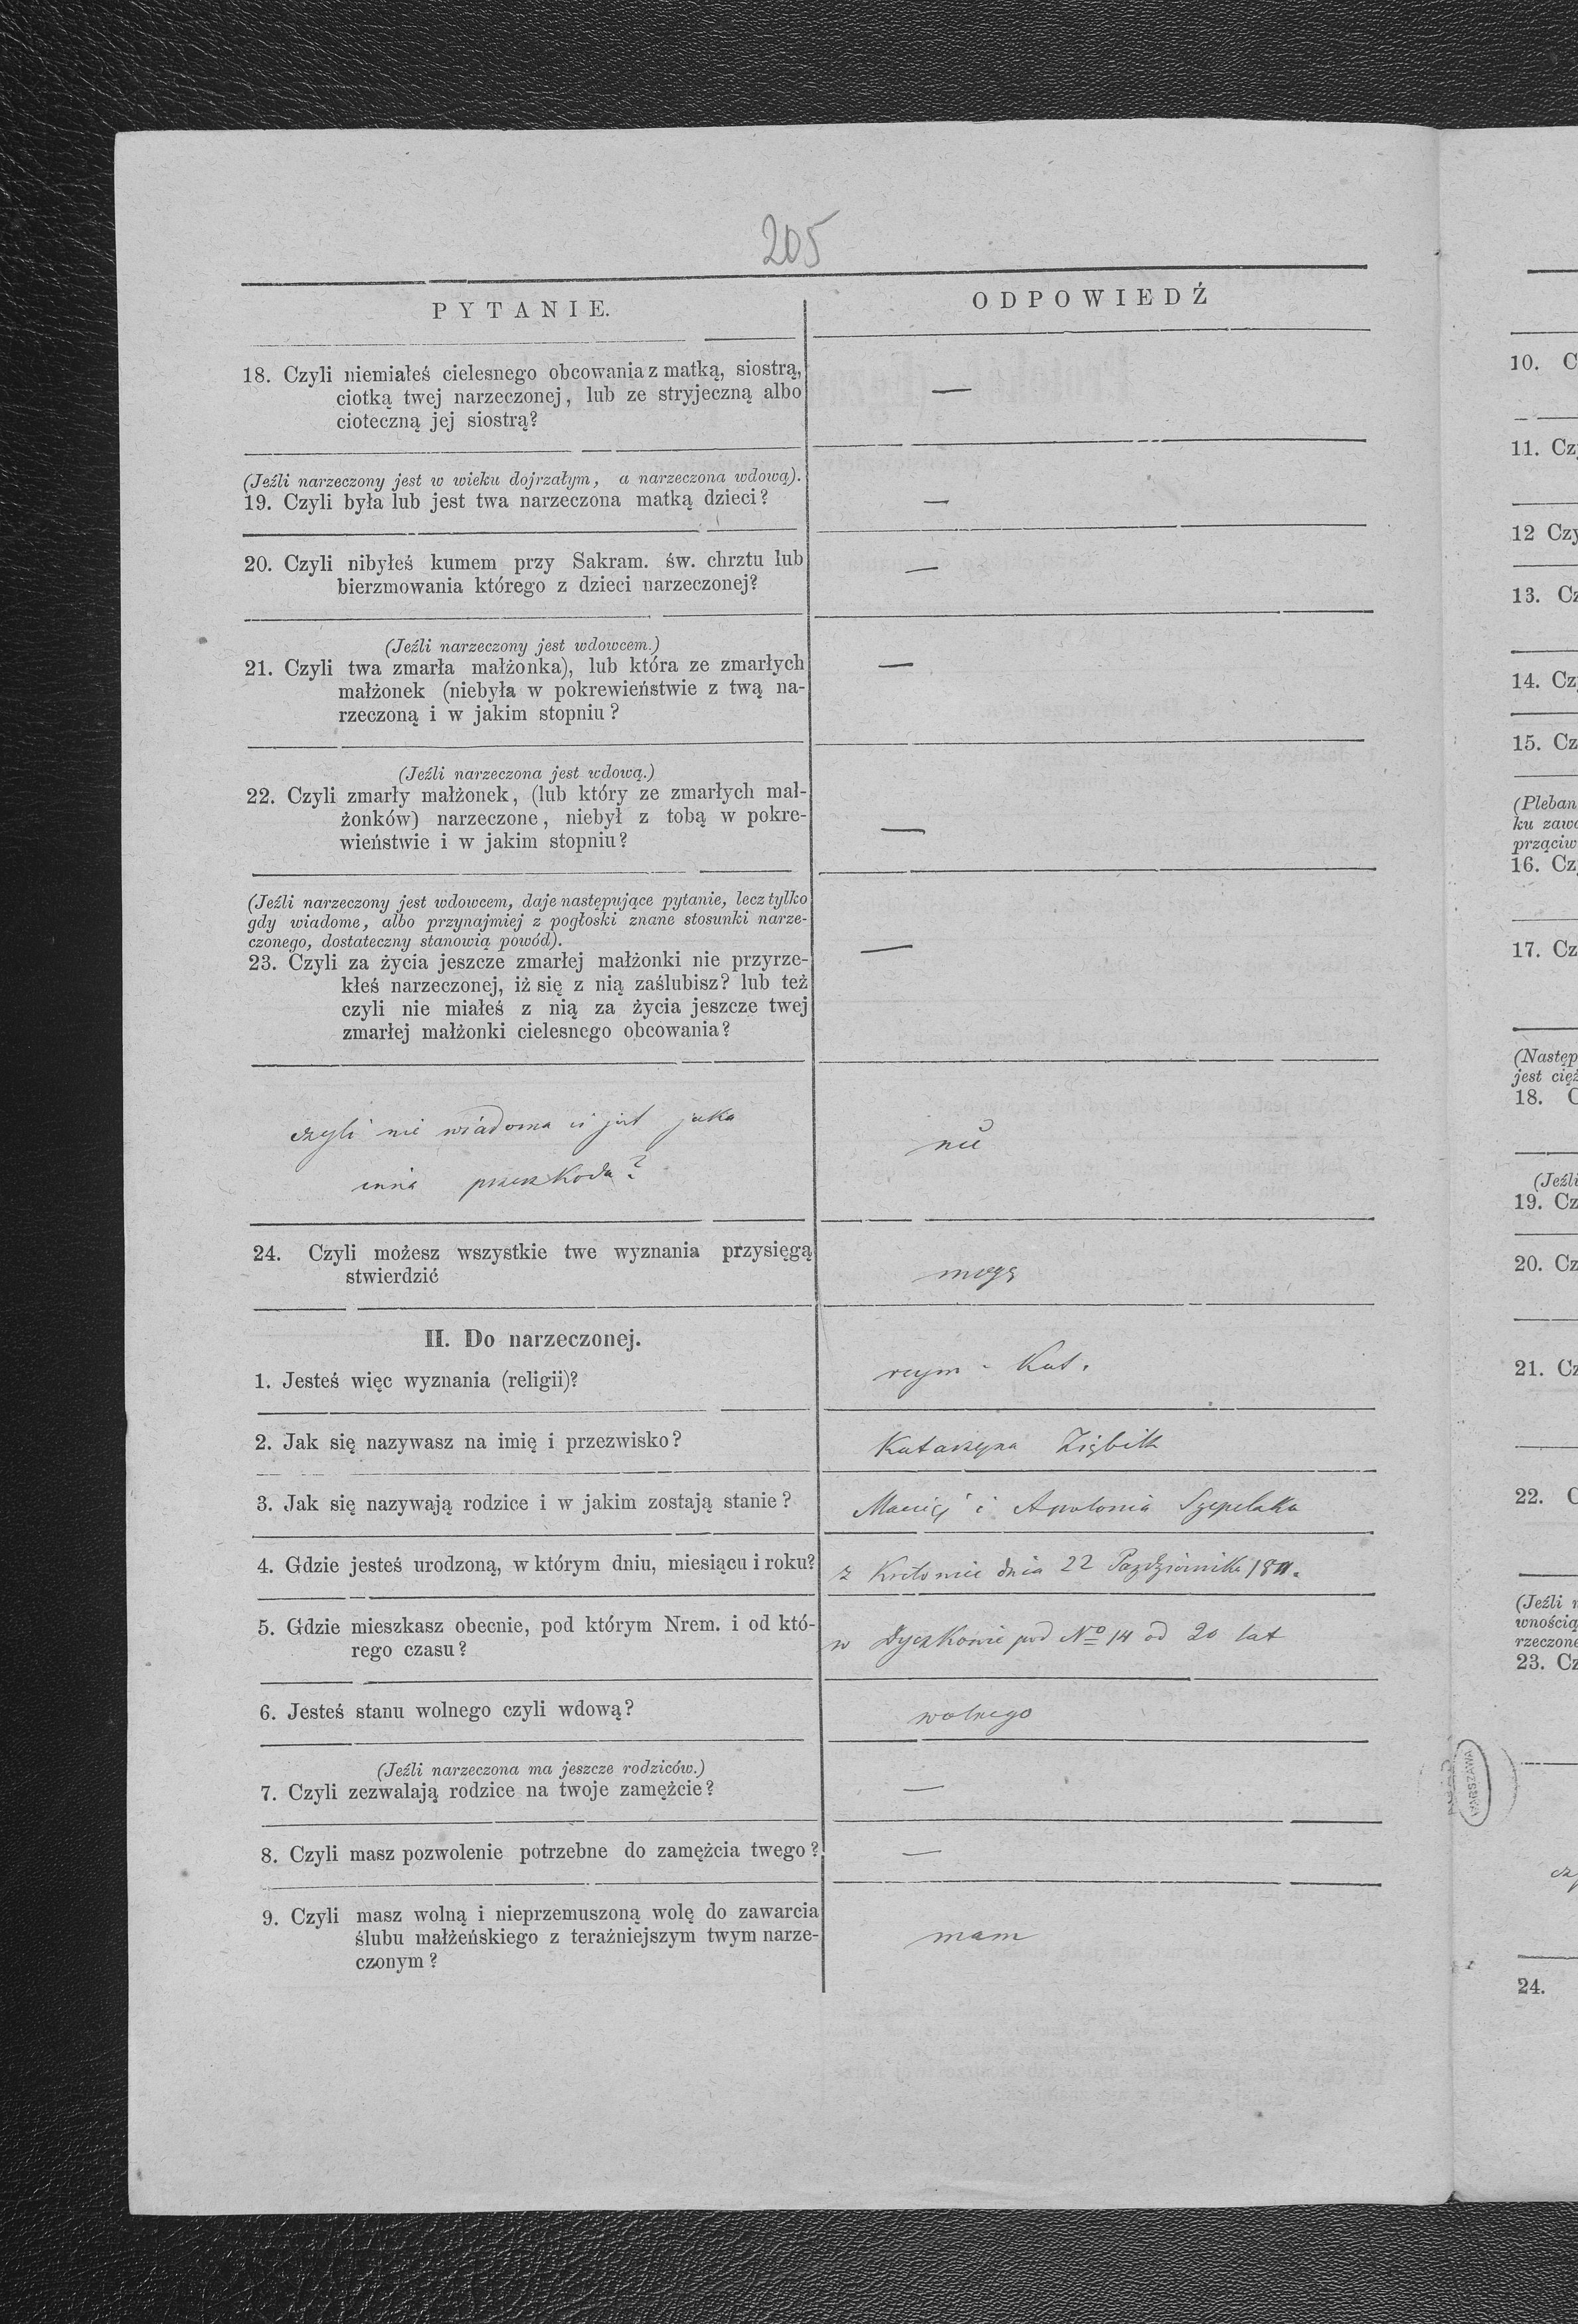 205
PYTANIE.
ODPOWIEDŹ
18. Czyli niemiałeś cielesnego obcowania z matką, siostrą,
ciotką twej narzeczonej, lub ze stryjeczną albo
cioteczną jej siostrą?
—
(Jeźli narzeczony jest w wieku dojrzałym, a narzeczona wdową).
19. Czyli była lub jest twa narzeczona matką dzieci?
—
20. Czyli nibyłeś kumem przy Sakram. św. chrztu lub
bierzmowania którego z dzieci narzeczonej?
—
(Jeźli narzeczony jest wdowcem.)
21. Czyli twa zmarła małżonka), lub która ze zmarłych
małżonek (niebyła w pokrewieństwie z twą na-
rzeczoną i w jakim stopniu?
—
(Jeźli narzeczona jest wdową.)
22. Czyli zmarły małżonek, (lub który ze zmarłych mał-
żonków) narzeczone, niebył z tobą w pokre-
wieństwie i w jakim stopniu?
—
(Jeźli narzeczony jest wdowcem, daje następujące pytanie, lecz tylko
gdy wiadome, albo przynajmiej z pogłoski znane stosunki narze-
czonego, dostateczny stanowią powód).
23. Czyli za życia jeszcze zmarłej małżonki nie przyrze-
kłeś narzeczonej, iż się z nią zaślubisz? lub też
czyli nie miałeś z nią za życia jeszcze twej
zmarłej małżonki cielesnego obcowania?
—
czyli nie wiadoma ci jest jaka
inna przeszkoda?
nie
24. Czyli możesz wszystkie twe wyznania przysięgą
stwierdzić
mogę
II. Do narzeczonej.
1. Jesteś więc wyznania (religii)?
rzym - Kat.
2. Jak się nazywasz na imię i przezwisko?
Katarzyna
3. Jak się nazywają rodzice i w jakim zostają stanie?
Maciej i Apolonia
4. Gdzie jesteś urodzoną, w którym dniu, miesiącu i roku?
dnia 22 Października
5. Gdzie mieszkasz obecnie, pod którym Nrem. i od któ-
rego czasu?
w Dyczkowie pod No 14 od 20 lat
6. Jesteś stanu wolnego czyli wdową?
wolnego
(Jeźli narzeczona ma jeszcze rodziców.)
7. Czyli zezwalają rodzice na twoje zamężcie?
—
8. Czyli masz pozwolenie potrzebne do zamężcia twego?
—
9. Czyli masz wolną i nieprzemuszoną wolę do zawarcia
ślubu małżeńskiego z teraźniejszym twym narze-
czonym?
mam
10. C
11. Cz
12 Czy
13. Cz
14. Cz
15. Cz
(Pleban
ku zawo
prząciw
16. Cz
17. Cz
(Następ
jest cięż
18. C
(Jeźli
19. Cz
20. Cz
21. Cz
22. C
(Jeźli n
wnością
rzeczone
23. Cz
WARSZAWA
24.